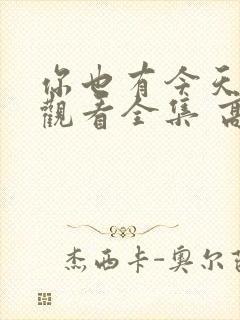 你也有今天
觀看全集 高
杰西卡-奥尔